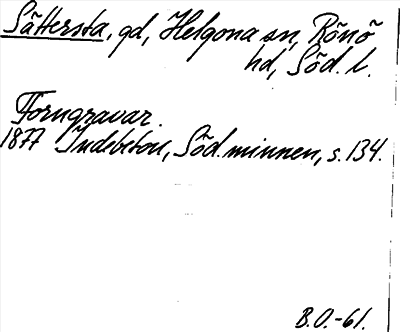 Sättersta, gd, Helgona sn, Rönö
hd, Söd. l.
Forngravar.
1877 Indebetou, Söd. minnen, s. 134.
B.O.-61.